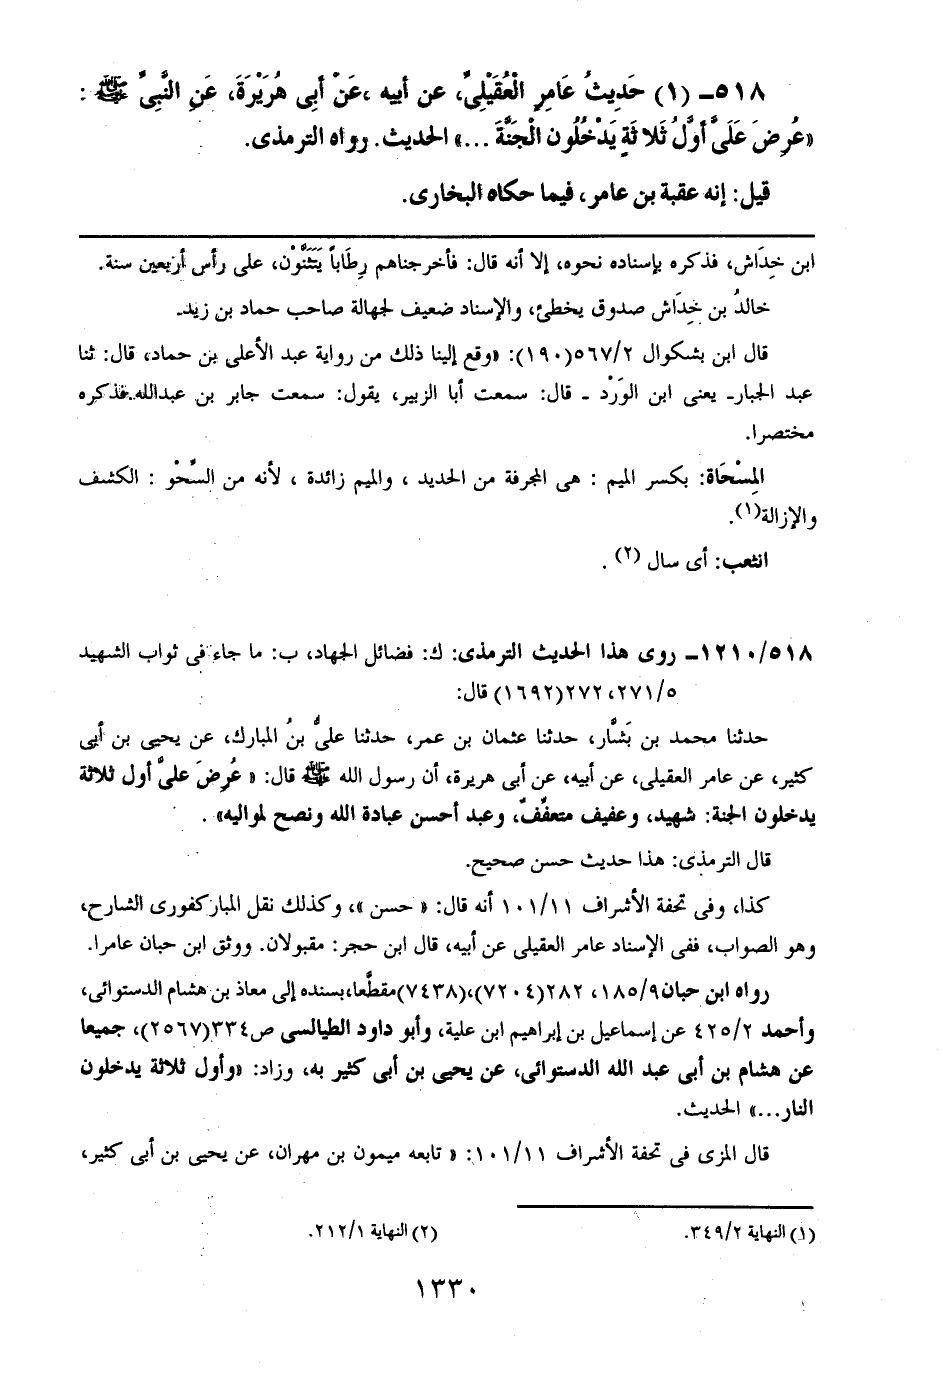 ٥١٨ـ (١) حَدِيثُ عَامِرٍ الْعُقَيْلِىِّ، عن أبيه ،عَنْ أبِى هُرَيْرَةَ، عَنِ النَّبِىِّ ﷺ :
«عُرِضَ عَلَىَّ أوَّلُ ثَلاثَةٍ يَدْخُلُون الْجَنَّةَ ...» الحديث. رواه الترمذى.
قيل: إنه عقبة بن عامر، فيما حكاه البخارى.
ابن خِدَاش، فذكره بإسناده نحوه، إلا أنه قال: فأخرجناهم رِطَاباً يَتَثَنَّوْن، على رأس أربعين سنة.
خالدُ بن خِدَاش صدوق يخطئ، والإسناد ضعيف لجهالة صاحب حماد بن زيد.
قال ابن بشكوال ٥٦٧/٢(١٩٠): «وقع إلينا ذلك من رواية عبد الأعلى بن حماد، قال: ثنا
عبد الجبارـ يعنى ابن الوَرْد ـ قال: سمعت أبا الزبير، يقول: سمعت جابر بن عبدالله..فذكره
مختصرا.
المِسْحَاة: بكسر الميم : هى المجرفة من الحديد ، والميم زائدة ، لأنه من السَّحْو : الكشف
والإزالة(١).
انثعب: أى سال (٢) .
١٢١٠/٥١٨ـ روى هذا الحديث الترمذى: ك: فضائل الجهاد، ب: ما جاء فى ثواب الشهيد
٢٧١/٥، ٢٧٢(١٦٩٢) قال:
حدثنا محمد بن بَشَّار، حدثنا عثمان بن عمر، حدثنا علىُّ بنُ المبارك، عن يحيى بن أبى
كثير، عن عامر العقيلى، عن أبيه، عن أبى هريرة، أن رسول الله ﷺ قال: « عُرِضَ علىَّ أول ثلاثة
يدخلون الجنة: شهيد، وعفيف متعفِّفٌ، وعبد أحسن عبادة الله ونصح لمواليه» .
قال الترمذى: هذا حديث حسن صحيح.
كذا، وفى تحفة الأشراف ١٠١/١١ أنه قال: « حسن »، وكذلك نقل المباركفورى الشارح،
وهو الصواب، ففى الإسناد عامر العقيلى عن أبيه، قال ابن حجر: مقبولان. ووثق ابن حبان عامرا.
رواه ابن حبان١٨٥/٩، ٢٨٢(٧٢٠٤)،(٧٤٣٨)مقطَّعا،بسنده إلى معاذ بن هشام الدستوائى،
وأحمد ٤٢٥/٢ عن إسماعيل بن إبراهيم ابن علية، وأبو داود الطيالسى ص٣٣٤(٢٥٦٧)، جميعا
عن هشام بن أبى عبد الله الدستوائى، عن يحيى بن أبى كثير به، وزاد: «وأول ثلاثة يدخلون
النار...» الحديث.
قال المزى فى تحفة الأشراف ١٠١/١١: « تابعه ميمون بن مهران، عن يحيى بن أبى كثير،
(١) النهاية ٣٤٩/٢. (٢) النهاية ٢١٢/١.
١٣٣٠